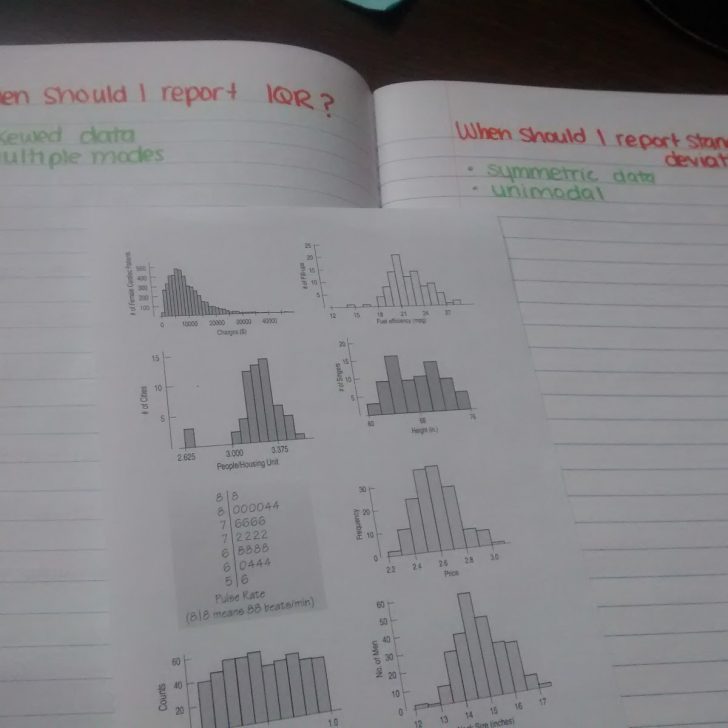 en should I report IQR?
kewed data
ultiple modes
When should I report stan
deviat
• symmetric data
• unimodal
# of Female Cardiac Patients
500
400
300
200
100
0 10000 20000 30000 40000
Charges ($)
# of Fill-ups
25
20
15
10
5
12 15 18 21 24 27
Fuel efficiency (mpg)
# of Cities
15
10
5
2.625 3.000 3.375
People/Housing Unit
# of Singers
20
15
10
5
60 68 76
Height (in.)
8|8
8|000044
7|6666
7|2222
6|8888
6|0444
5|6
Pulse Rate
(8|8 means 88 beats/min)
Frequency
30
20
10
0
2.2 2.4 2.6 2.8 3.0
Price
Counts
60
40
20
1.0
No. of Men
60
50
40
30
20
10
0
12 13 14 15 16 17
Size (inches)